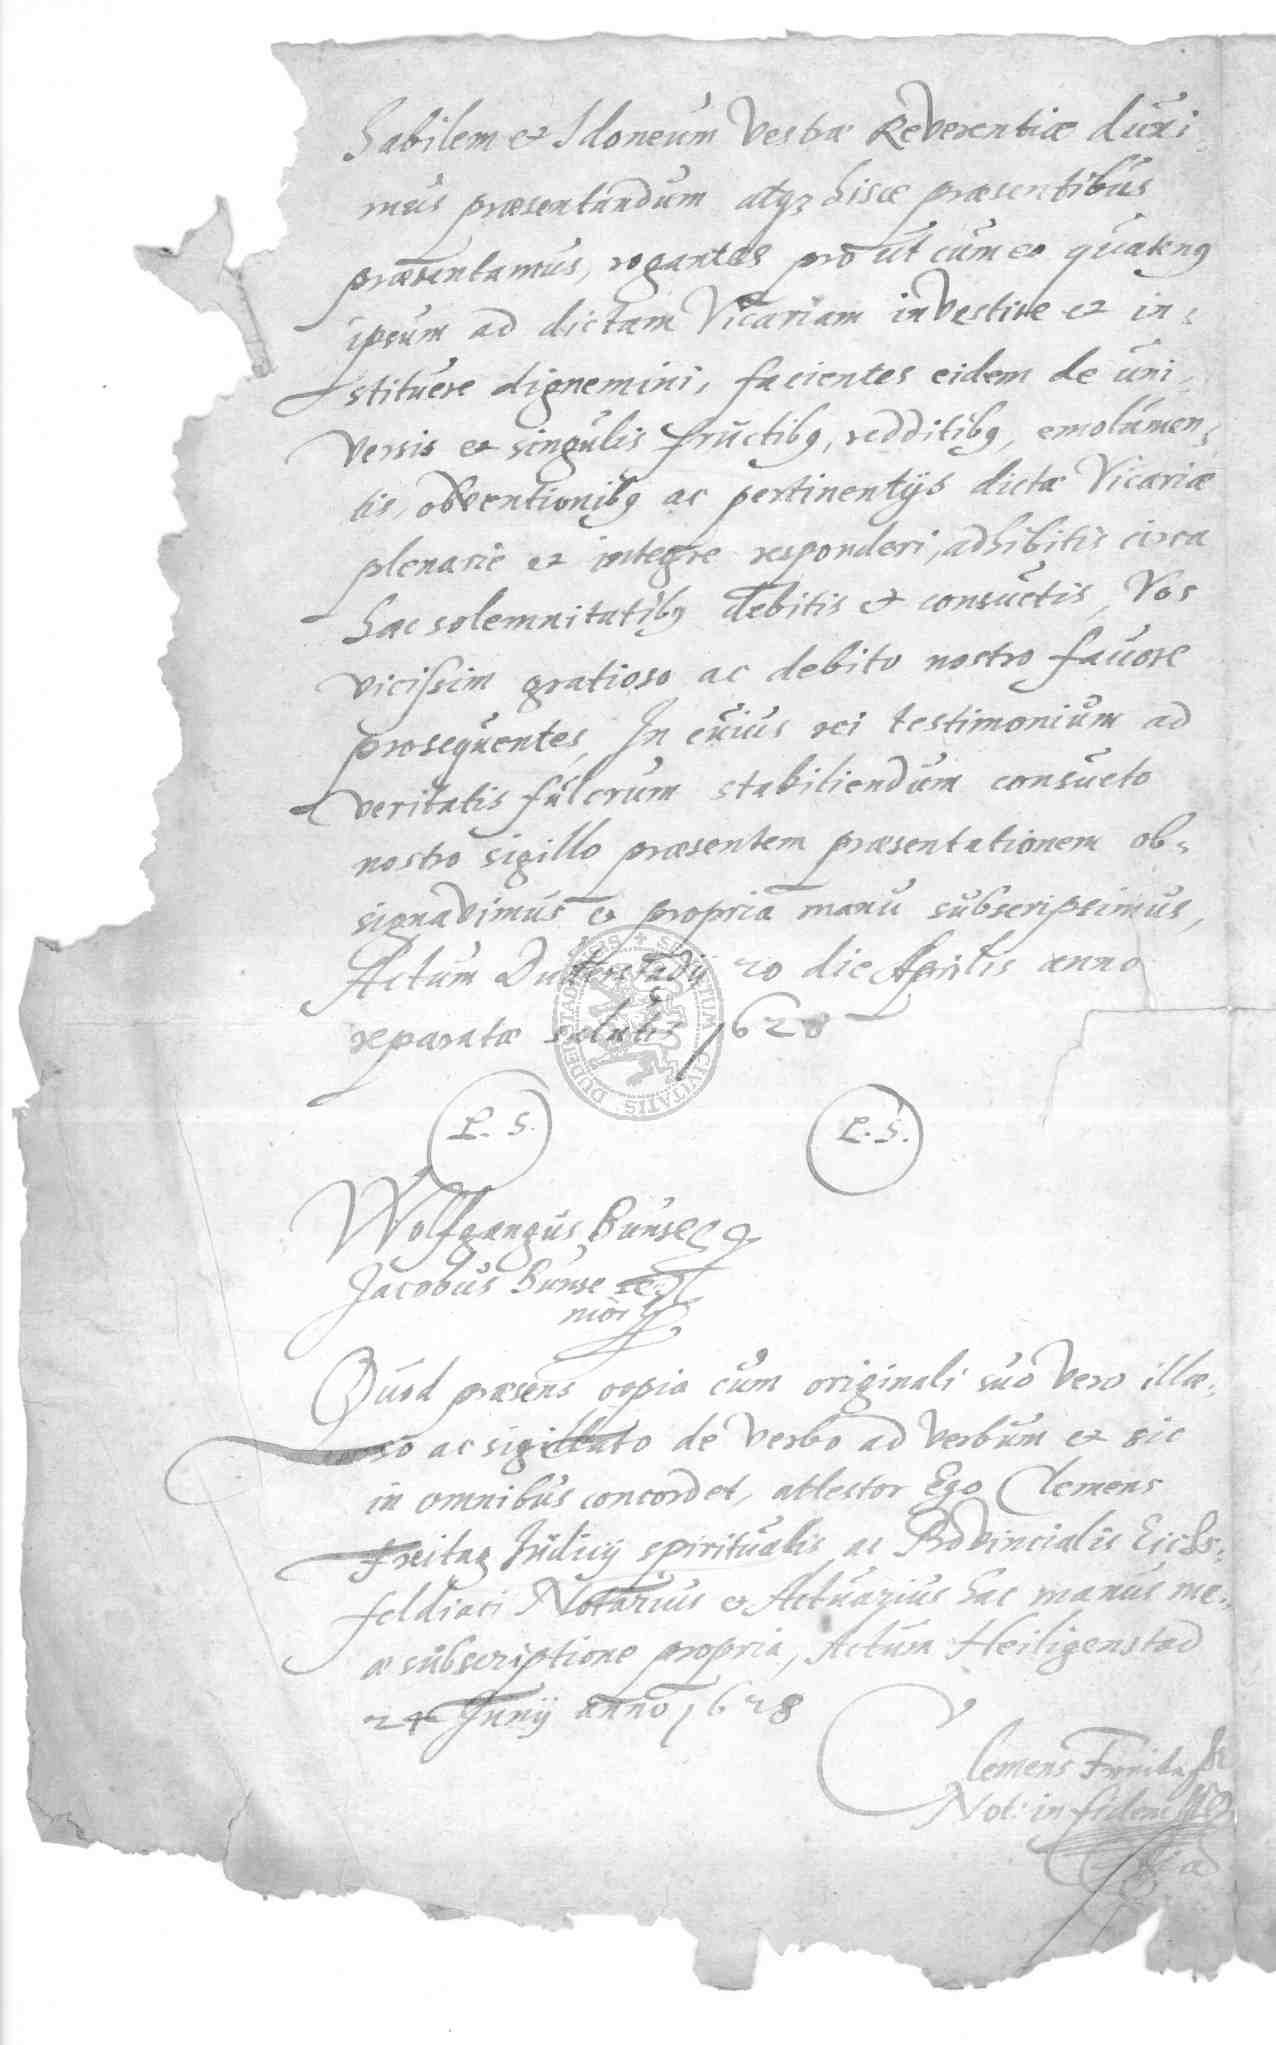 habilem et Idoneum Vestræ Reverentiæ duxi-
mus præsentandum atqȝ hisce præsentibus
præsentamus, rogantes pro ut cum eo quatenꝰ
ipsum ad dictam Vicariam investire et in-
stituere dignemini, facientes eidem de uni-
versis et singulis fructibꝰ, redditibꝰ, emolumen-
tis, obventionibꝰ ac pertinentijs dictæ Vicariæ
plenarie et integre responderi, adhibitis circa
hac solemnitatibꝰ debitis et consuetis, Vos
vicissim gratioso ac debito nostro favore
prosequentes, In cuius rei testimonium ad
veritatis fulcrum stabiliendum consueto
nostro sigillo præsentem præsentationem ob-
signavimus et propria manu subscripsimus,
Actum Duderstadij 20 die Aprilis anno
reparatæ salutis 1628
SIGILLUM CIVITATIS DUDERSTADENSIS
L. S. L. S.
Wolfgangus Bunse
Jacobus Bunse
Quod præsens copia cum originali suo vero illæ-
so ac sigillato de verbo ad verbum et sic
in omnibus concordet, attestor Ego Clemens
Freitag Judicij spiritualis ac Provincialis Eichs-
feldiaci Notarius et Actuarius hac manus me-
æ subscriptione propria, Actum Heiligenstad
24 Junij anno 1628
Clemens Freitag
Not: in fidem